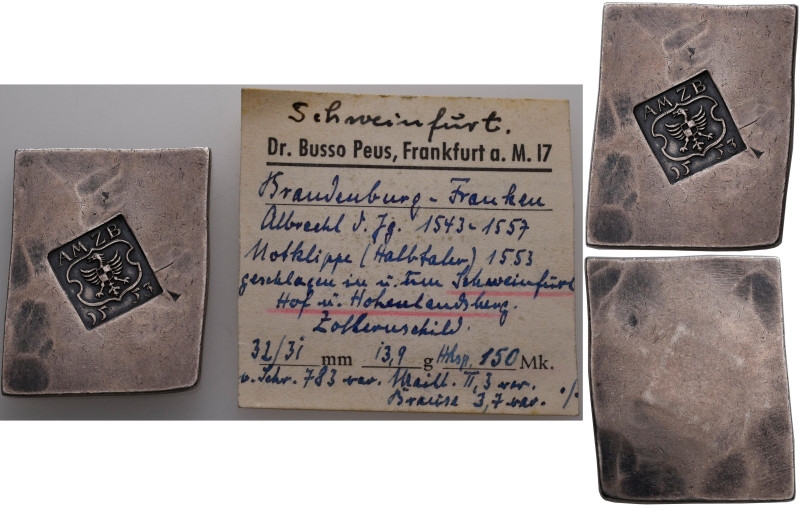 AMZB
1553
Schweinfurt.
Dr. Busso Peus, Frankfurt a. M. 17
Brandenburg - Franken
Albrecht d. Jg. 1543-1557
Notklippe (Halbtaler) 1553
geschlagen in u. um Schweinfurt
Hof u. Hohenlandsberg.
Zollernschild.
32/31 mm 13,9 g Hbsp. 150 Mk.
v. Schr. 783 var. Maill. II, 3 var. ./.
Brause 3,7 var.
AMZB
1553